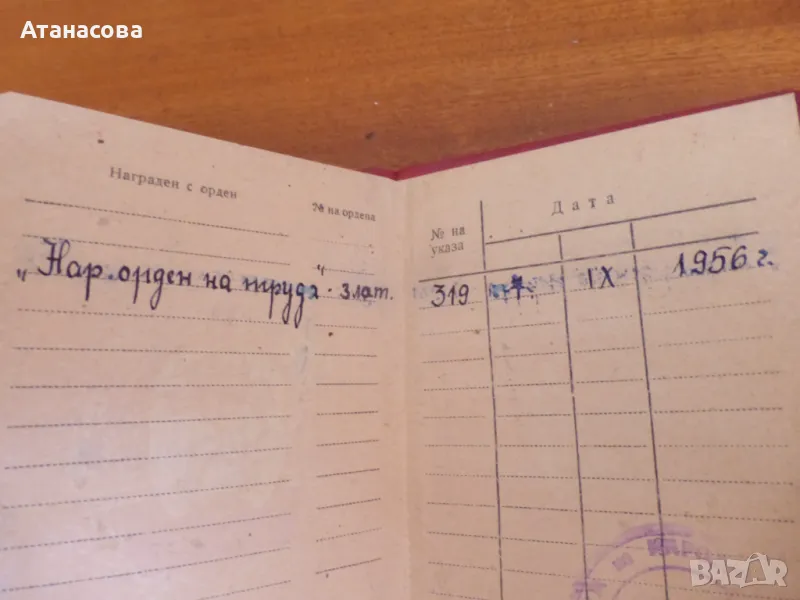 Атанасова
Награден с орден
№ на ордена
№ на указа
Дата
„Нар. орден на труда“ - злат.
319 7. IX 1956 г.
BAZAR